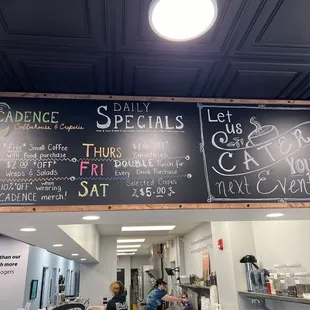 CADENCE
Coffeehouse & Crêperie
DAILY
SPECIALS
*Free* Small Coffee
with food purchase
$2.00 *OFF*
Wraps & Salads
10% *OFF* when
wearing
CADENCE merch!
THURS
Smoothies
FRI
DOUBLE Punch for
Every Drink Purchase
SAT
Selected Crepes
2 $5.00
Let
Us
CATER
You
next Event